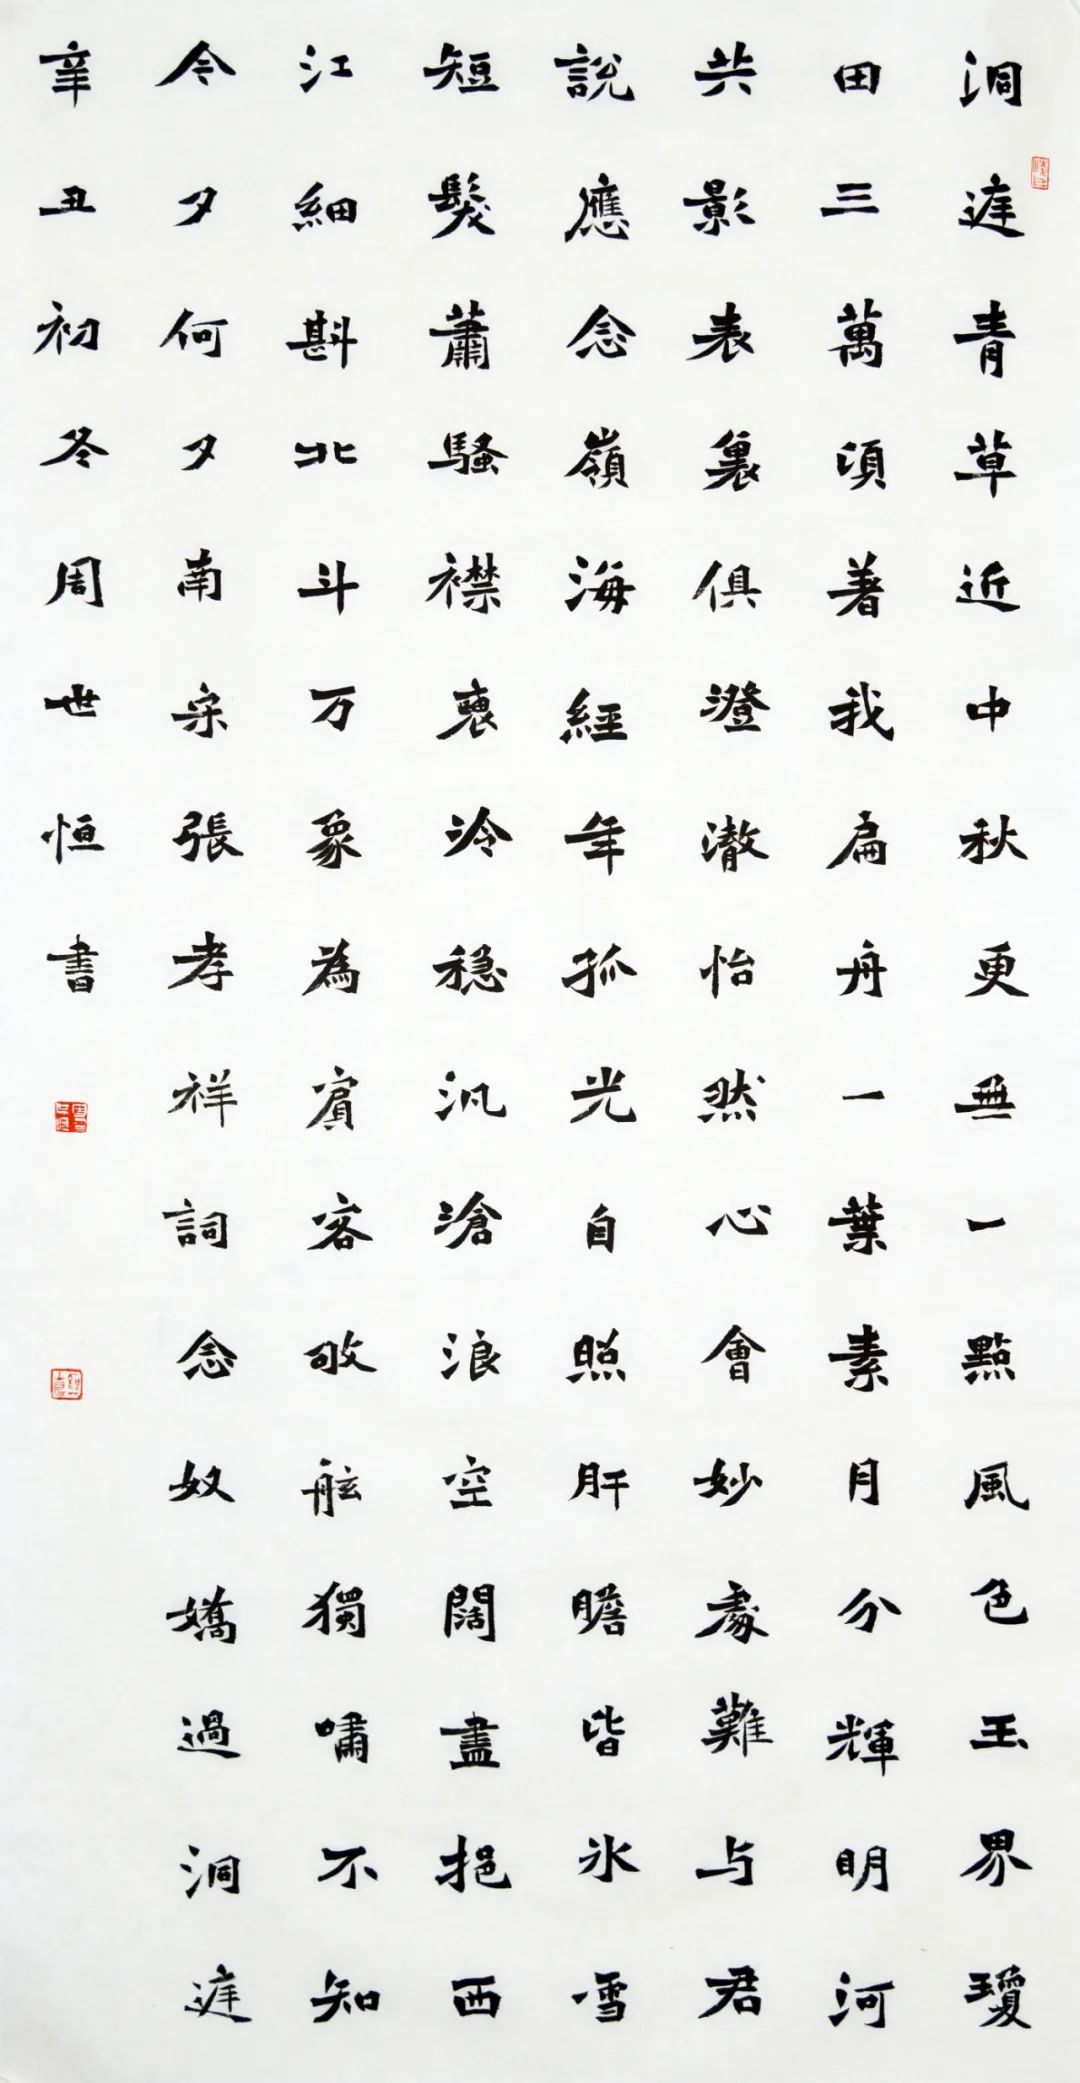 洞庭青草近中秋更無一點風色玉界瓊
田三萬頃著我扁舟一葉素月分輝明河
共影表裏俱澄澈怡然心會妙處難与君
說應念嶺海經年孤光自照肝膽皆氷雪
短髮蕭騷襟裏冷穩汎滄浪空闊盡挹西
江細斟北斗万象為賓客敂舷獨嘯不知
今夕何夕南宋張孝祥詞念奴嬌過洞庭
辛丑初冬周世恒書